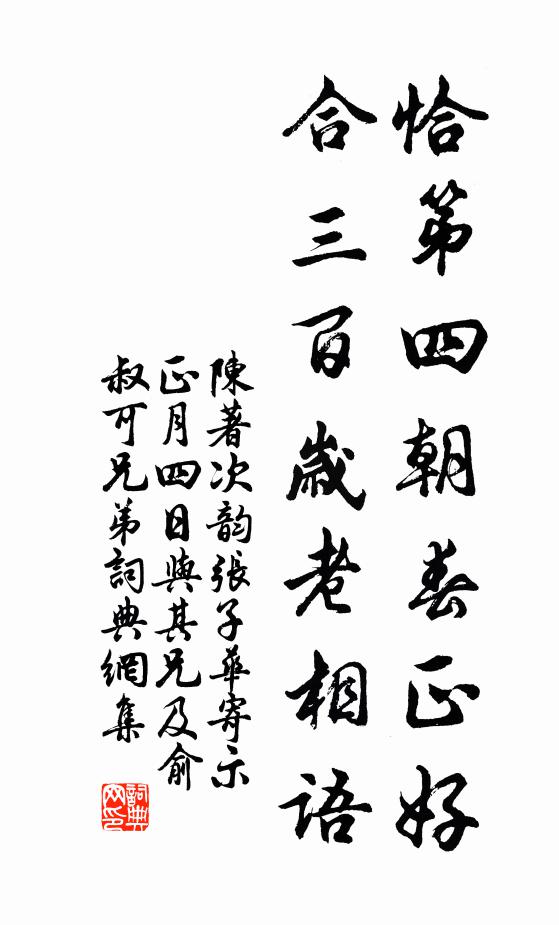 恰第四朝春正好
合三百歲老相語
陳著次韵張子華寄示
正月四日與其兄及俞
叔可兄弟詞典網集
詞典网印